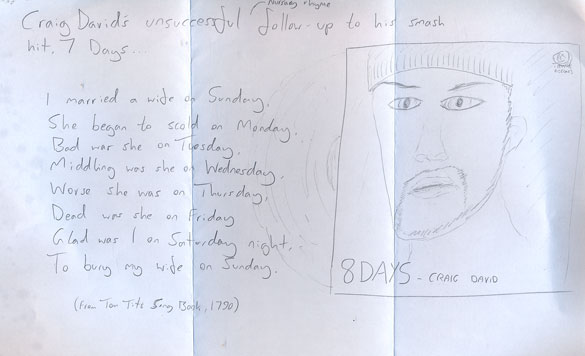 Nursery rhyme
Craig David's unsuccessful follow-up to his smash
hit, 7 Days...
I married a wife on Sunday,
She began to scold on Monday,
Bad was she on Tuesday,
Middling was she on Wednesday,
Worse she was on Thursday,
Dead was she on Friday
Glad was I on Saturday night,
To bury my wife on Sunday.
(From Tom Tit's Song Book, 1790)
8 DAYS - CRAIG DAVID